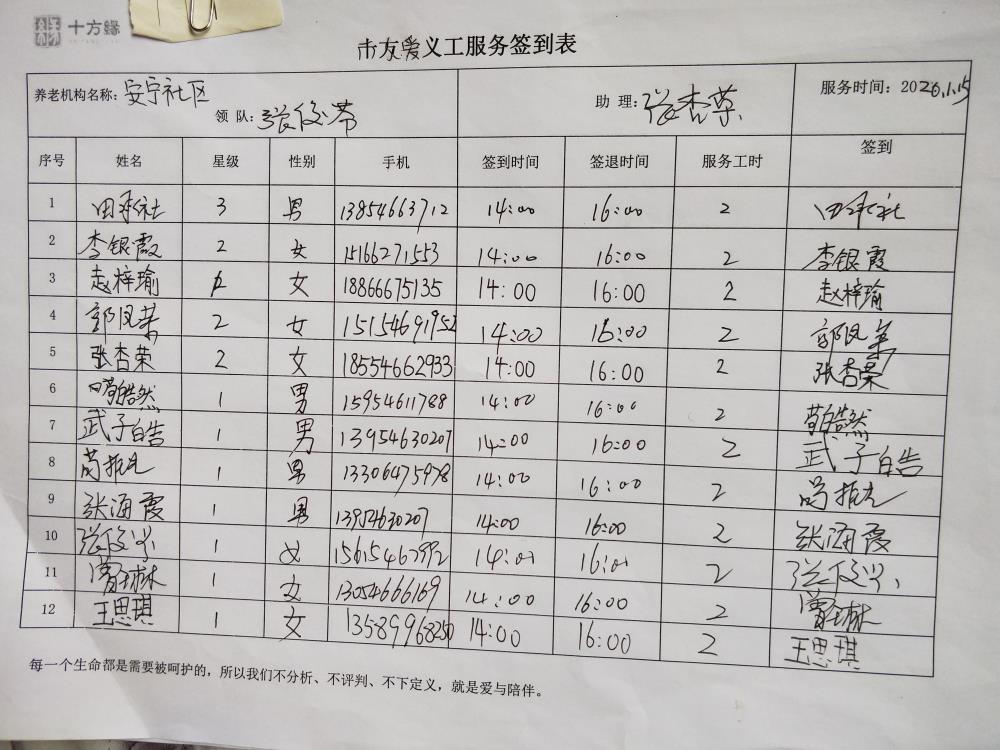 十方缘
市友爱义工服务签到表
养老机构名称：安宁社区
领 队：张俊芳
助 理：张杏荣
服务时间：2026.1.15
序号 姓名 星级 性别 手机 签到时间 签退时间 服务工时 签到
1 田承社 3 男 13854663712 14:00 16:00 2 田承社
2 李银霞 2 女 15166271553 14:00 16:00 2 李银霞
3 赵梓瑜 女 18866675135 14:00 16:00 2 赵梓瑜
4 郭凤荣 2 女 15154691952 14:00 16:00 2 郭凤英
5 张杏荣 2 女 18554662933 14:00 16:00 2 张杏荣
6 皓然 1 男 15954611788 14:00 16:00 2 皓然
7 武子皓 1 男 13954630207 14:00 16:00 2 武子皓
8 1 男 13306475978 14:00 16:00 2
9 张海霞 1 男 13954630207 14:00 16:00 2 张海霞
10 张俊 1 女 15615467992 14:01 16:01 2 张俊
11 曹林 1 女 13054666169 14:00 16:00 2 曹林
12 王思琪 1 女 13589968250 14:00 16:00 2 王思琪
每一个生命都是需要被呵护的，所以我们不分析、不评判、不下定义，就是爱与陪伴。